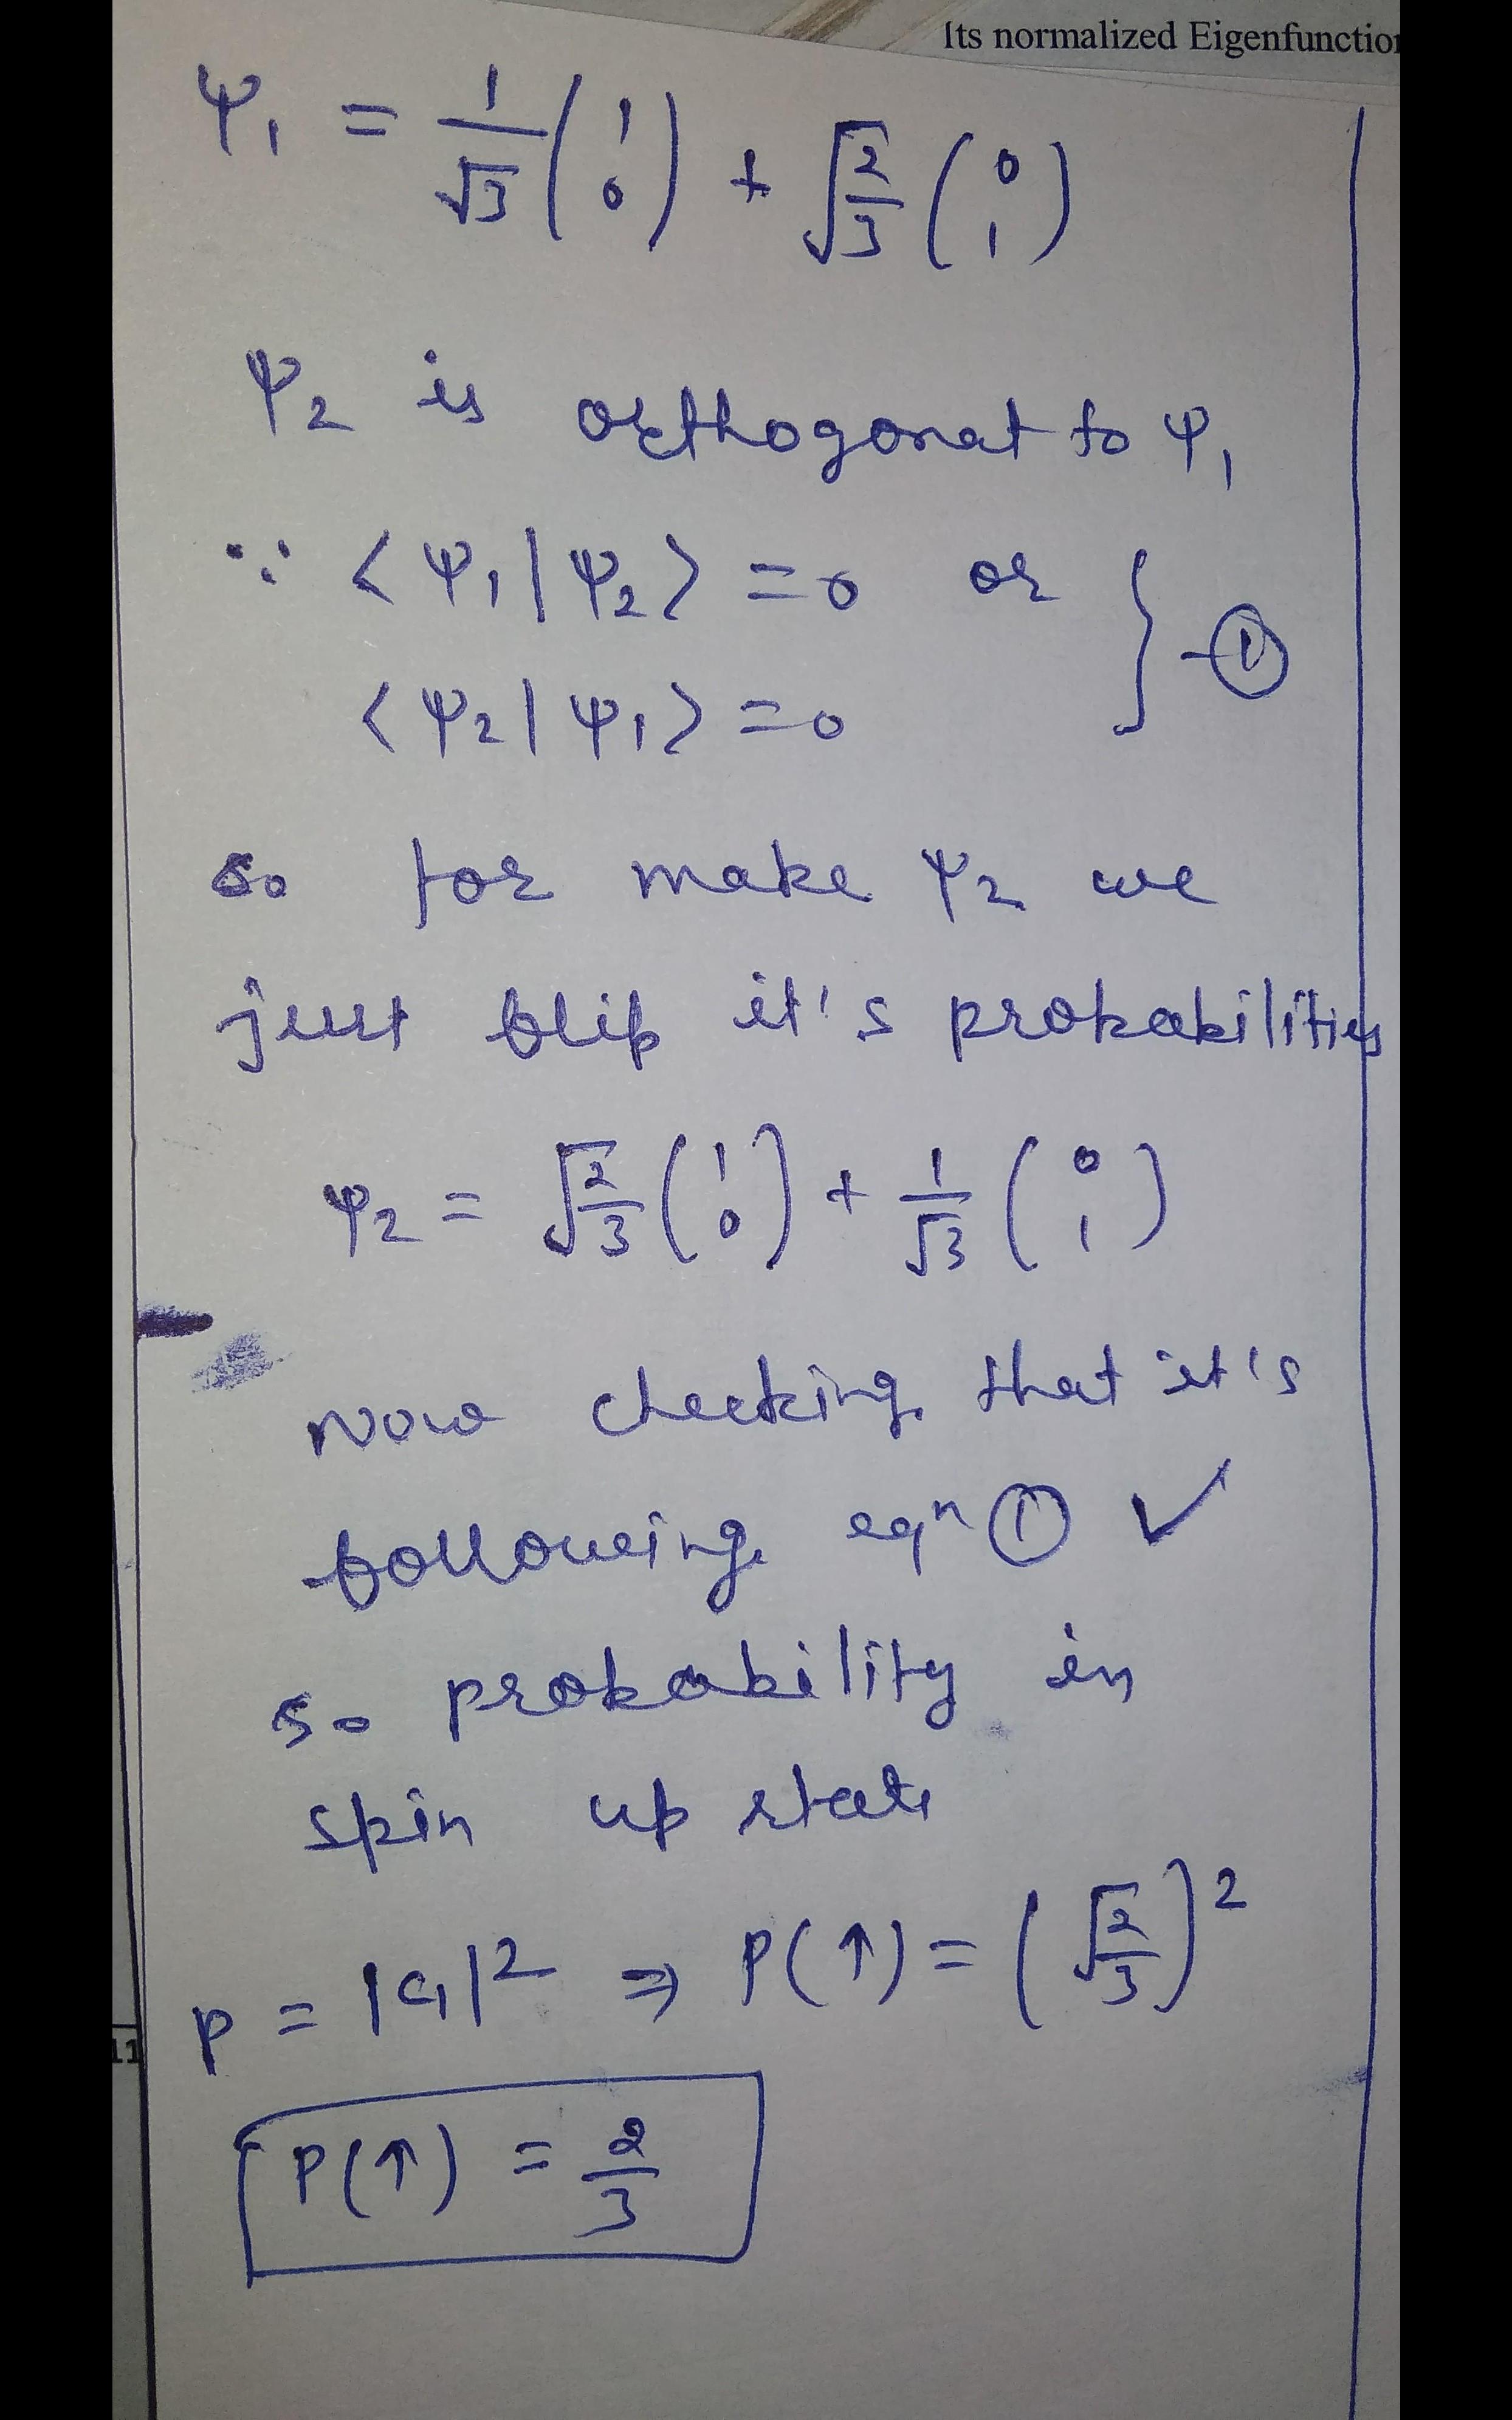 Its normalized Eigenfunction
Ψ₁ = 1/√3 (1 0) + √2/3 (0 1)
Ψ₂ is orthogonal to Ψ₁
∵ <Ψ₁|Ψ₂> = 0 or
<Ψ₂|Ψ₁> = 0 } - ①
so for make Ψ₂ we
just flip it's probabilities
Ψ₂ = √2/3 (1 0) + 1/√3 (0 1)
Now checking that it's
following eqⁿ ① ✓
so probability in
spin up state
P = |C₁|² ⇒ P(↑) = (√2/3)²
P(↑) = 2/3
11